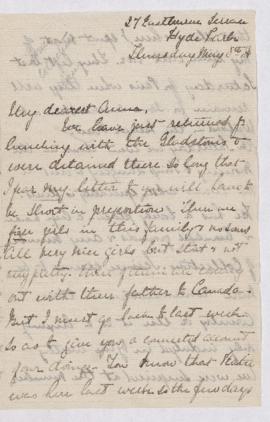 Hyde Park
Thursday May
My dearest Anna,
We have just returned fr
lunching with the Gladstones &
were detained there so long that
I fear my letter to you will have to
be short in proportion. There are
five girls in this family & no sons
till very nice girls but that's not
out with their father to Canada.
But I must go back to last week
so as to give you a connected account
of our doings. You know that Katie
was here last week so the few days